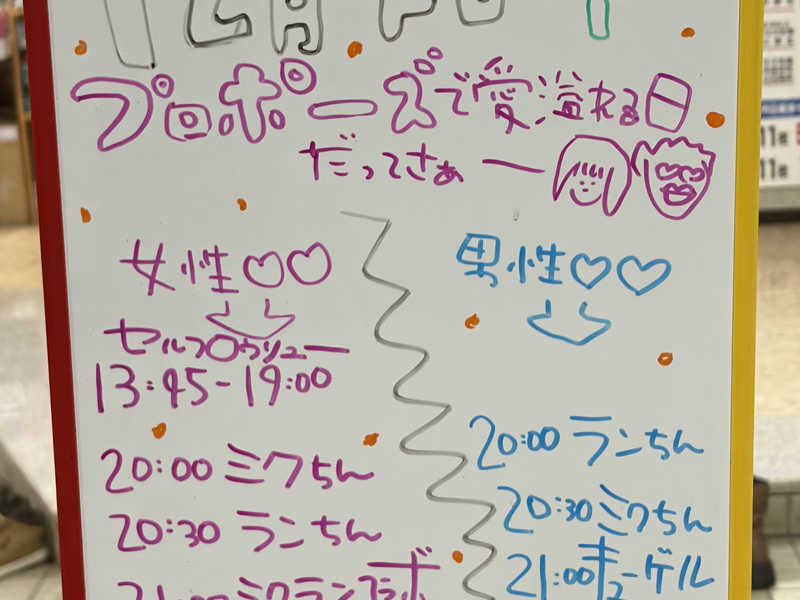 プロポーズで愛溢れる日
だってさぁー
女性♡♡
セルフロウリュー
13:45-19:00
20:00 ミクちん
20:30 ランちん
21:00 ミクランコラボ
男性♡♡
20:00 ランちん
20:30 ミクちん